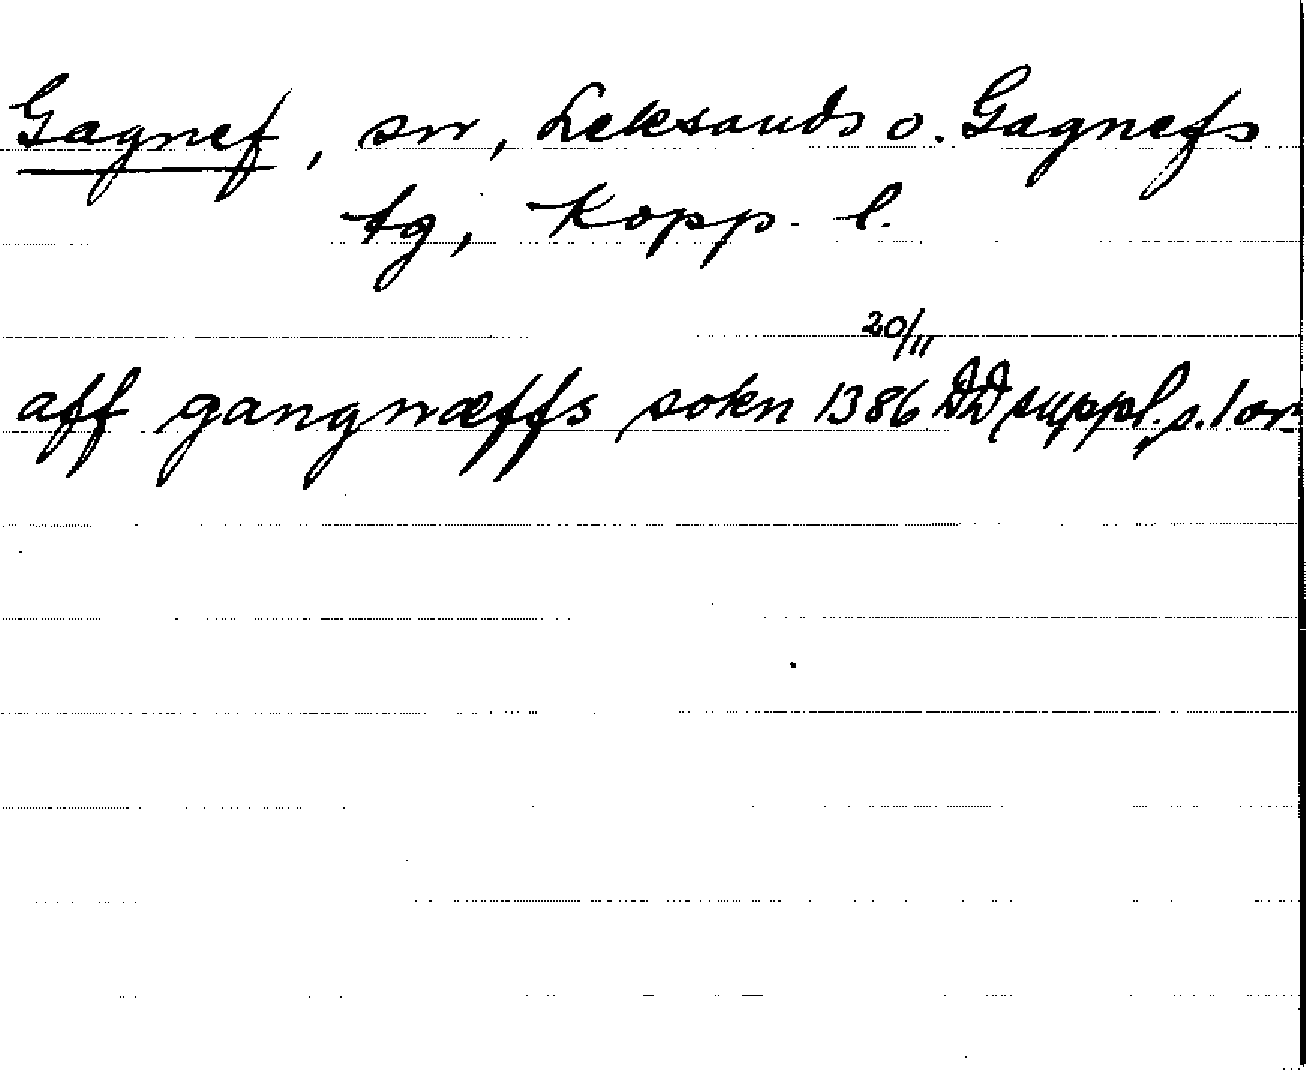 Gagnef, sn, Leksands o. Gagnefs
tg, Kopp. l.
20/11
aff gangnæffs sokn 1386 DD suppl. s. 1 or